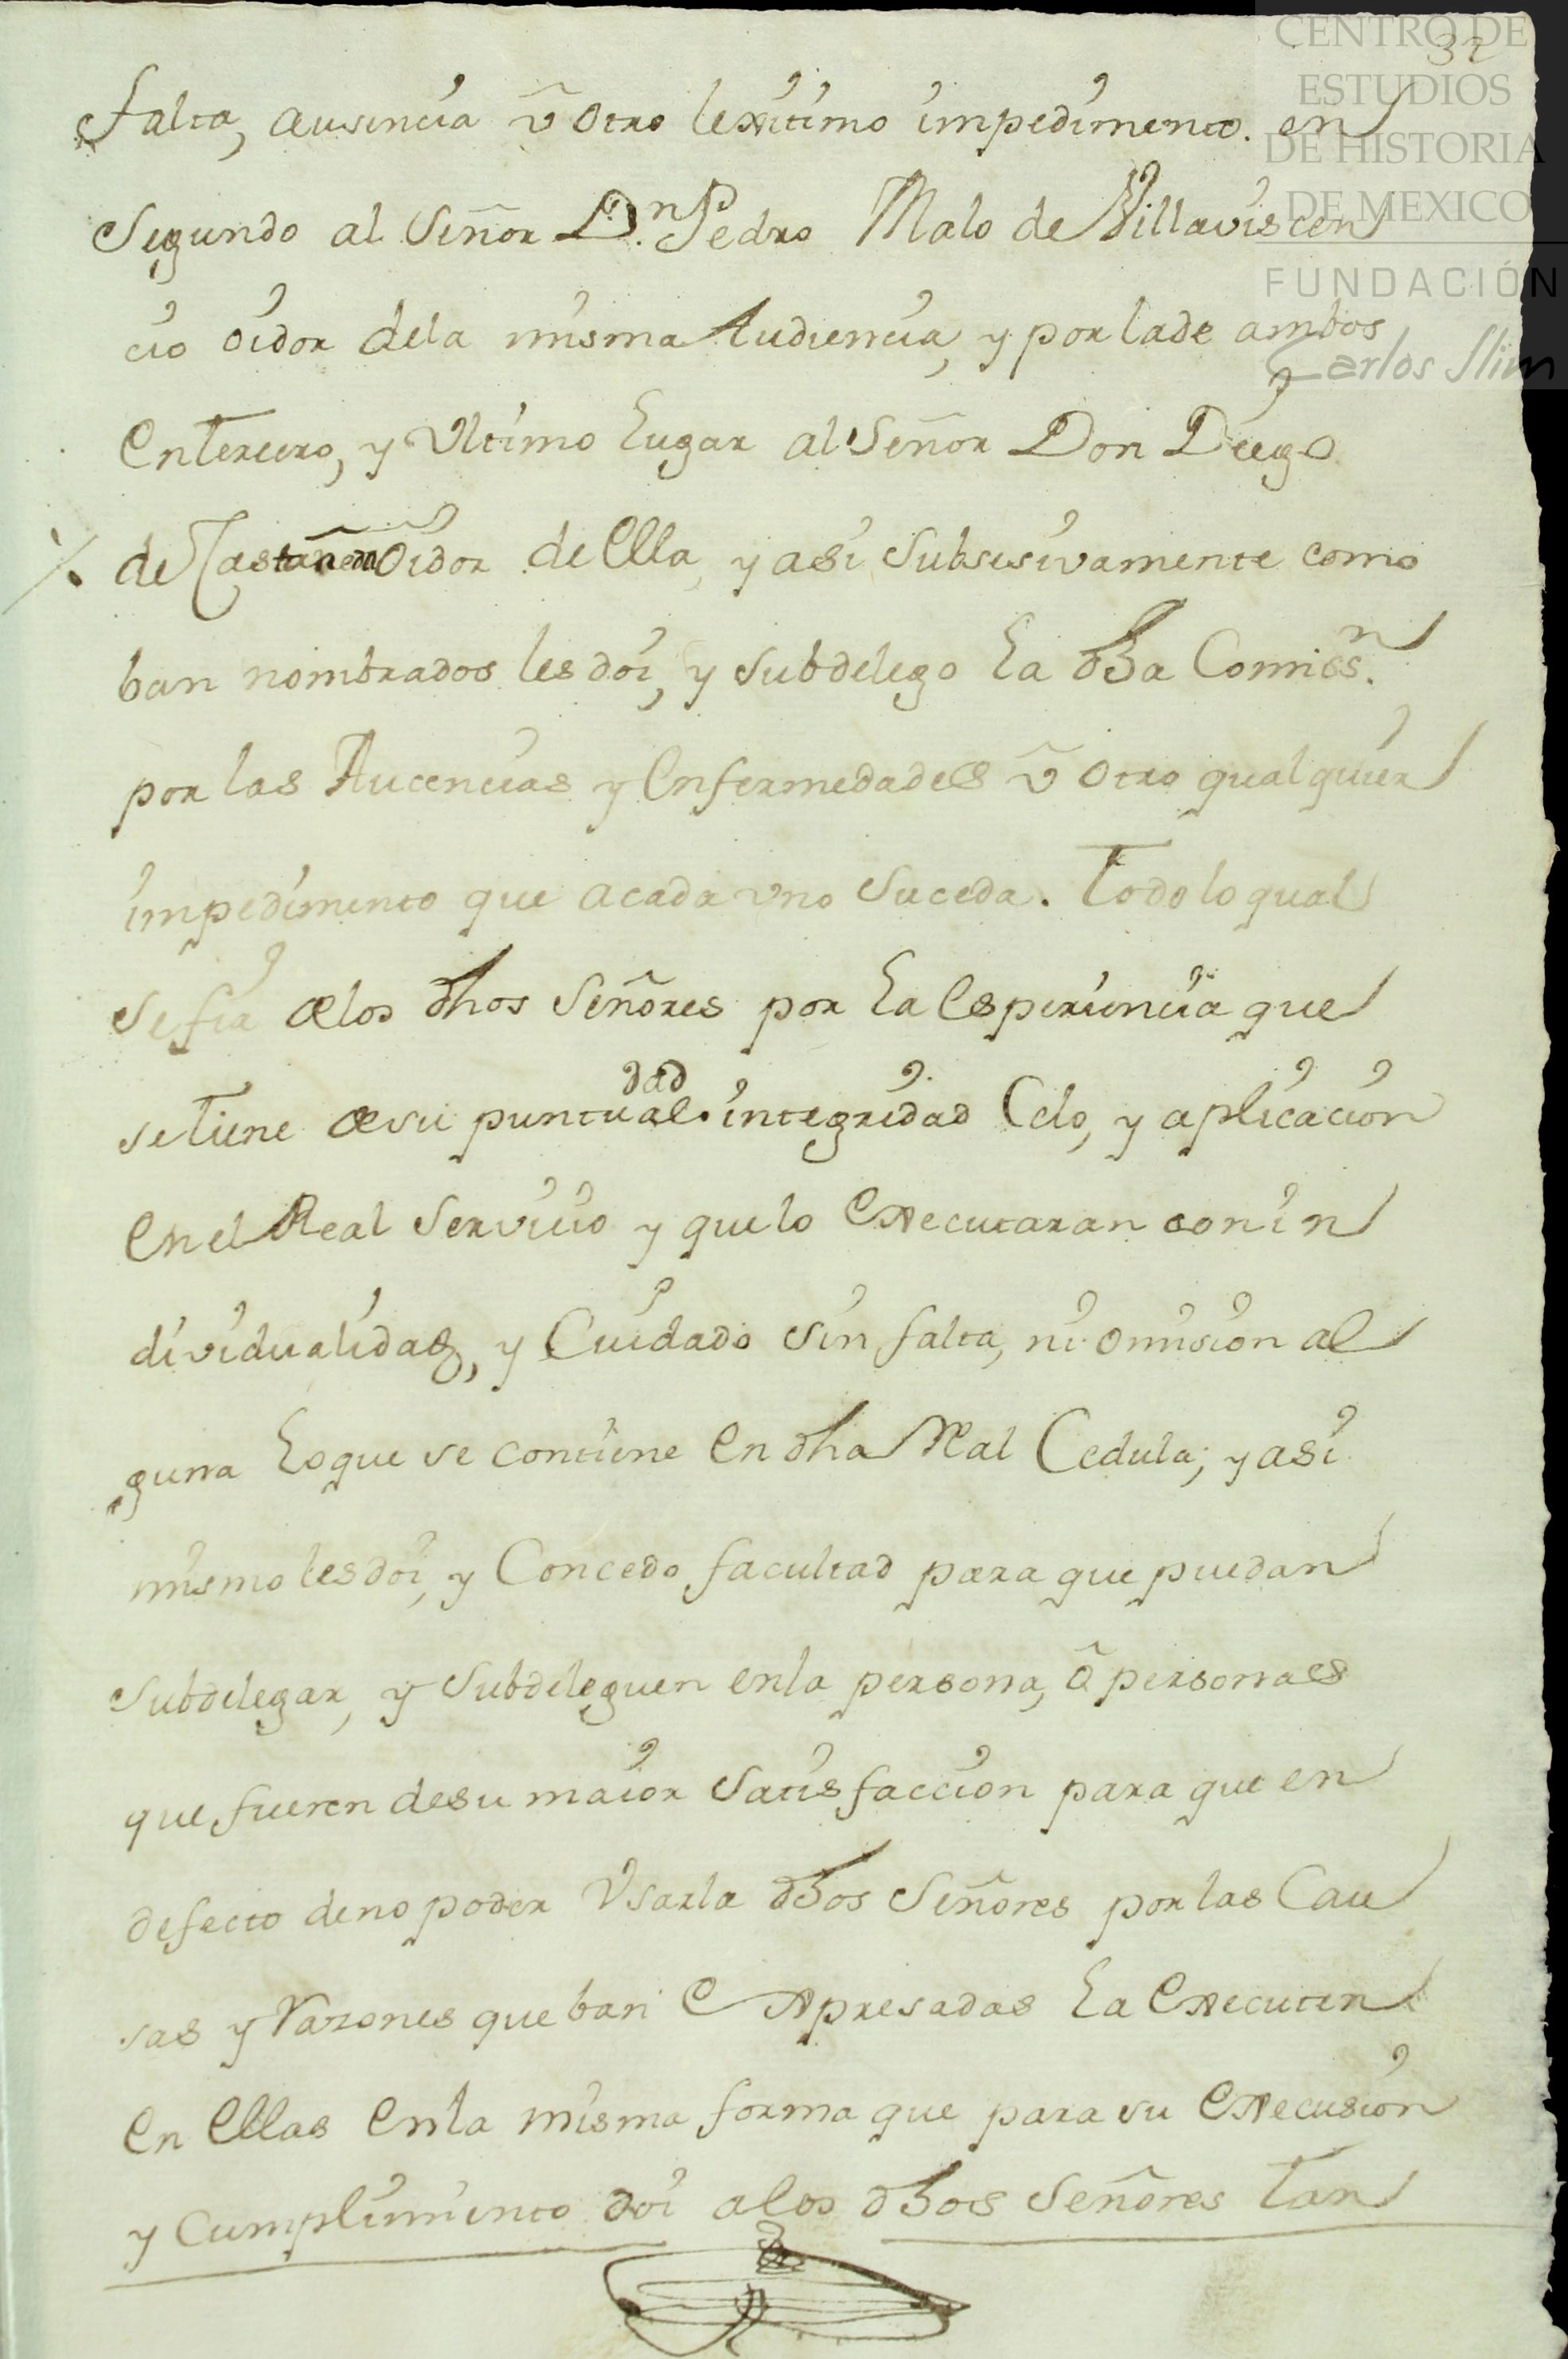 CENTRO DE
ESTUDIOS
DE HISTORIA
DE MEXICO
FUNDACIÓN
Carlos Slim
32
falta, ausencia v̂ otro lexitimo impedimento. en
Segundo al Señor Dn. Pedro Malo de Villavisen
cio oidor dela misma Audiencia, y por lade ambos
en Tercero, y Ultimo lugar al Señor Don Diego
de Castañeda Oidor de ella, y asi Subsesivamente como
ban nombrados les doi, y Subdelego la dha Comisn.
por las Aucencias y enfermedades v̂ otro qualquier
impedimento que acada uno Suceda. Todo lo qual
Se fia de los dhos Señores por la esperiencia que
se Tiene de su puntualdad. integridad Celo, y aplicacion
en el Real Servicio y que lo executaran con in
dividualidad, y Cuidado Sin falta, ni omision al
guna lo que se contiene en dha Real Cedula; y asi
mismo les doi, y Concedo facultad para que puedan
Subdelegar, y Subdeleguen en la persona, ô personas
que fueren de su maior Satisfaccion para que en
defecto de no poder Usarla dhos Señores por las Cau
sas y razones que ban expresadas la executen
en ellas en la misma forma que para su execusion
y Cumplimiento doi a los dhos Señores tan